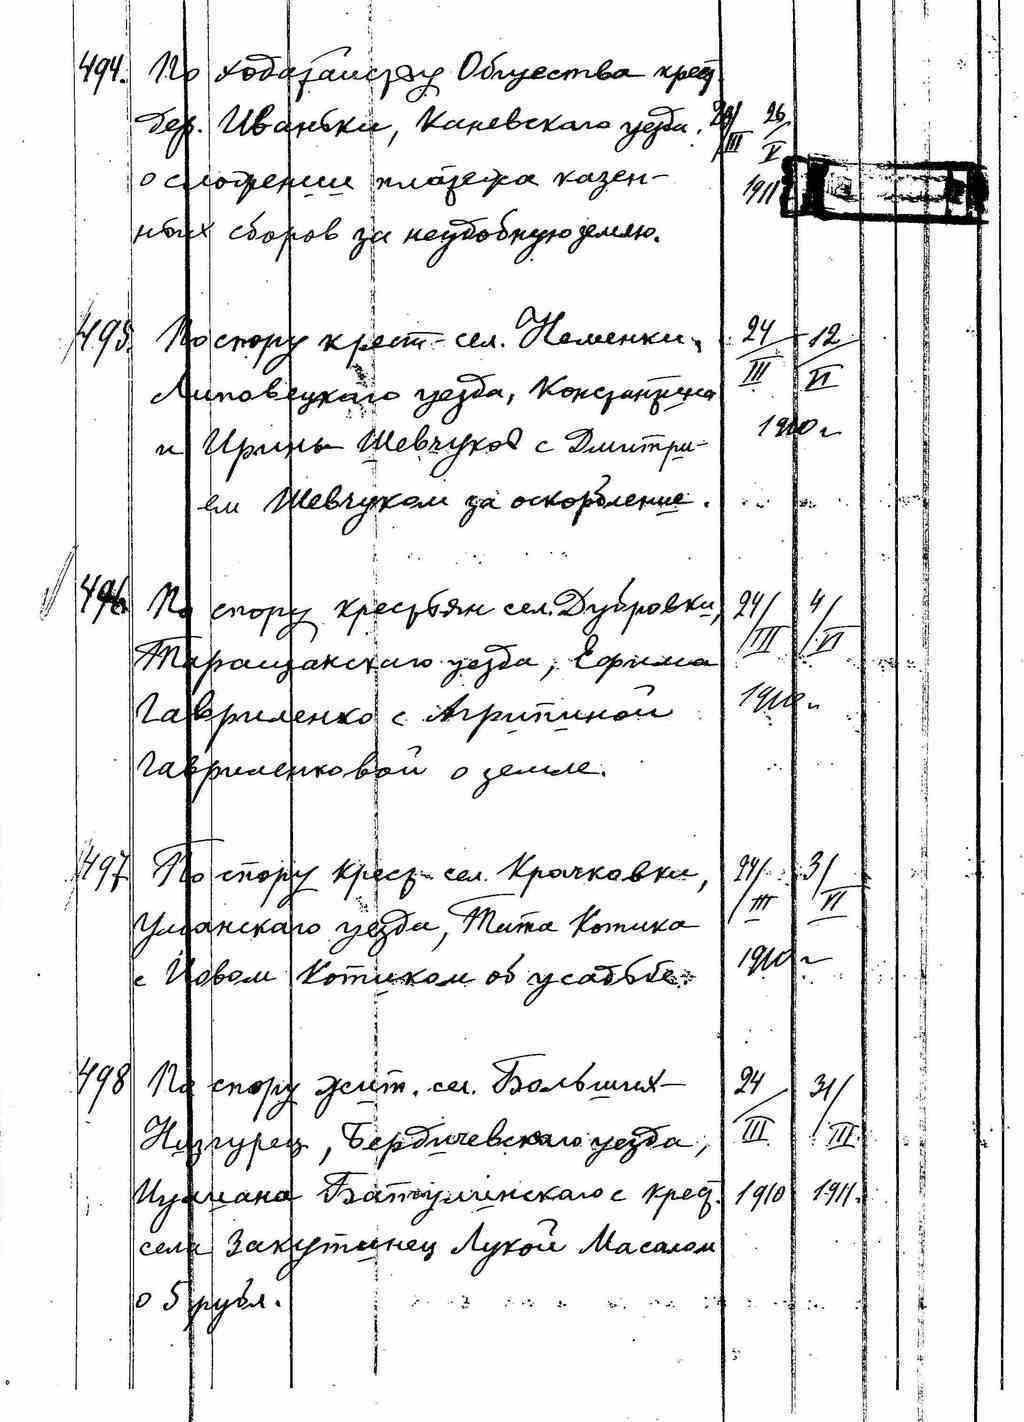 494. По ходатайству Общества крест.
дер. Иваньки, Каневского уезда, 20/III 26/V
о сложении платежа казен-
1911
ных сборов за неудобную землю.
495. По спору крест. сел. Неменки, 24/III 12/VI
Липовецкаго уезда, Константина
и Ирины Шевчуков с Дмитри- 1910 г
ем Шевчуком за оскорбление.
496 По спору крестьян сел. Дубровки, 24/III 4/VI
Таращанскаго уезда, Ефима
Гавриленко с Агрипиной 1910 г.
Гавриленковой о земле.
497 По спору крест. сел. Крачковки, 24/III 3/VI
Уманскаго уезда, Тита Котика
с Иовом Котиком об усадьбе. 1910 г
498 По спору жит. сел. Больших- 24/III 31/III
Низгурец, Бердичевскаго уезда,
Батулинскаго с крест. 1910 1911.
села Закутинец Лукой Масалом
о 5 рубл.